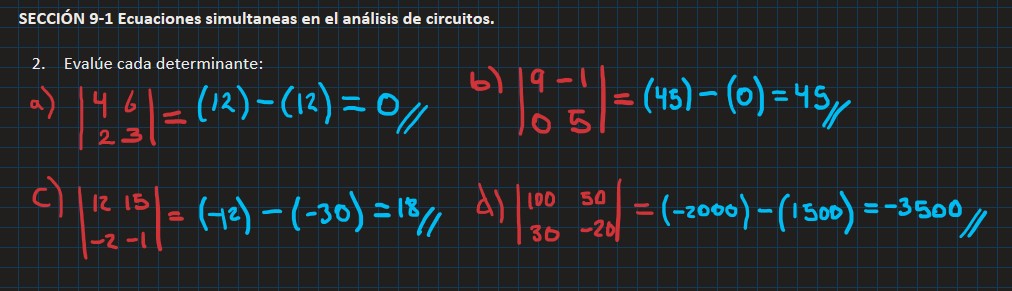 SECCIÓN 9-1 Ecuaciones simultaneas en el análisis de circuitos.
2. Evalúe cada determinante:
a) |4 6
2 3| = (12) - (12) = 0 //
b) |9 -1
0 5| = (45) - (0) = 45 //
c) |12 15
-2 -1| = (-12) - (-30) = 18 //
d) |100 50
30 -20| = (-2000) - (1500) = -3500 //